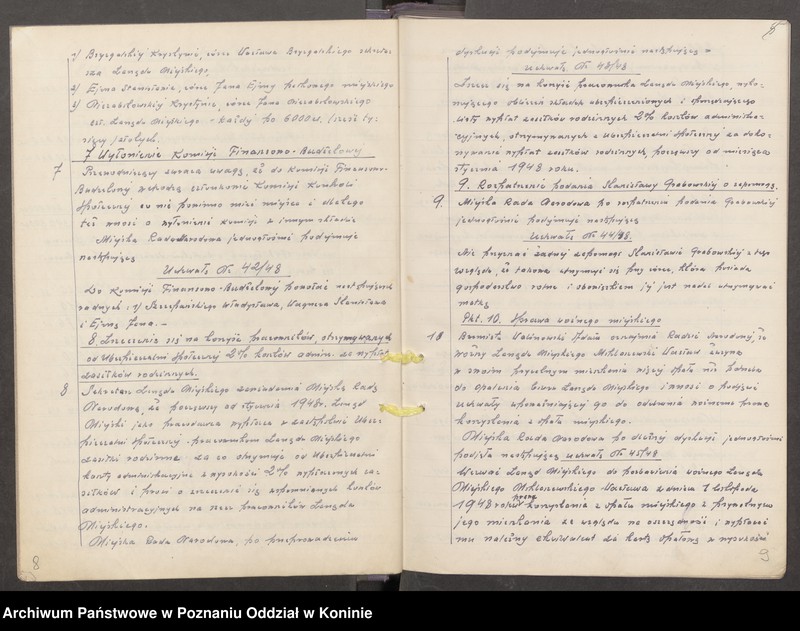 1/ Bryzgalskiej Krystynie, córce Wacława Bryzgalskiego sekretarza Zarządu Miejskiego,
2/ Ejma Stanisławie, córce Jana Ejmy
3/ Krystynie, córce Jana
Zarządu Miejskiego - każdej po 6000 zł. /sześć tysięcy /złotych.
7. Wyłonienie Komisji Finansowo-Budżetowej
7 Przewodniczący zwraca uwagę, że do Komisji Finansowo-
Budżetowej wchodzą członkowie Komisji Kontroli
Społecznej co nie powinno mieć miejsca i dlatego
też wnosi o wyłonienie komisji w innym składzie
Miejska Rada Narodowa jednogłośnie podejmuje
następującą
Uchwałę Nr. 42/48
Do Komisji Finansowo-Budżetowej powołać następujących
radnych: 1/ Szczepańskiego Władysława, Wagnera Stanisława
i Ejmę Jana. -
8. Zrzeczenie się na korzyść pracowników, otrzymywanych
od Ubezpieczalni Społecznej 2% kosztów admin. za wypłatę
zasiłków rodzinnych.
8 Sekretarz Zarządu Miejskiego zawiadamia Miejską Radę
Narodową, że począwszy od stycznia 1948 r. Zarząd
Miejski jako pracodawca wypłaca w zastępstwie Ubez-
pieczalni Społecznej pracownikom Zarządu Miejskiego
zasiłki rodzinne za co otrzymuje od Ubezpieczalni
koszty administracyjne w wysokości 2% wypłaconych za-
siłków i prosi o zrzeczenie się wspomnianych kosztów
administracyjnych na rzecz pracowników Zarządu
Miejskiego.
Miejska Rada Narodowa, po przeprowadzeniu
8
5
dyskusji podejmuje jednogłośnie następującą
Uchwałę Nr. 43/48
Zrzec się na korzyść pracownika Zarządu Miejskiego, wyko-
nującego obliczeń składek ubezpieczeniowych i sporządzającego
listy wypłat zasiłków rodzinnych 2% kosztów administra-
cyjnych, otrzymywanych z Ubezpieczalni Społecznej za doko-
nywanie wypłat zasiłków rodzinnych, począwszy od miesiąca
stycznia 1948 roku.
9. Rozpatrzenie podania Stanisławy Grabowskiej o zapomogę.
9. Miejska Rada Narodowa po rozpatrzeniu podania Grabowskiej
jednogłośnie podejmuje następującą
Uchwałę Nr. 44/48.
Nie przyznać żadnej zapomogi Stanisławie Grabowskiej z tego
względu, że takowa utrzymuje się przy córce, która posiada
gospodarstwo rolne i obowiązkiem jej jest nadal utrzymywać
matkę
Pkt. 10. Sprawa woźnego miejskiego
10 Burmistrz Walinowski oznajmia Radzie Narodowej, że
woźny Zarządu Miejskiego Mikłaszewski Wacław używa
w swoim prywatnym mieszkaniu więcej opału niż
do opalania biura Zarządu Miejskiego i wnosi o podjęcie
uchwały upoważniającej go do odebrania woźnemu prawa
korzystania z opału miejskiego.
Miejska Rada Narodowa po dłuższej dyskusji jednogłośnie
podjęła następującą uchwałę Nr. 45/48
Wezwać Zarząd Miejski do pozbawienia woźnego Zarządu
Miejskiego Mikłaszewskiego Wacława z dniem 1 listopada
1948 roku prawa korzystania z opału miejskiego w prywatnym
jego mieszkaniu ze względu na oszczędność i wypłacać
mu należny ekwiwalent za kartę opałową w wysokości
9
Archiwum Państwowe w Poznaniu Oddział w Koninie